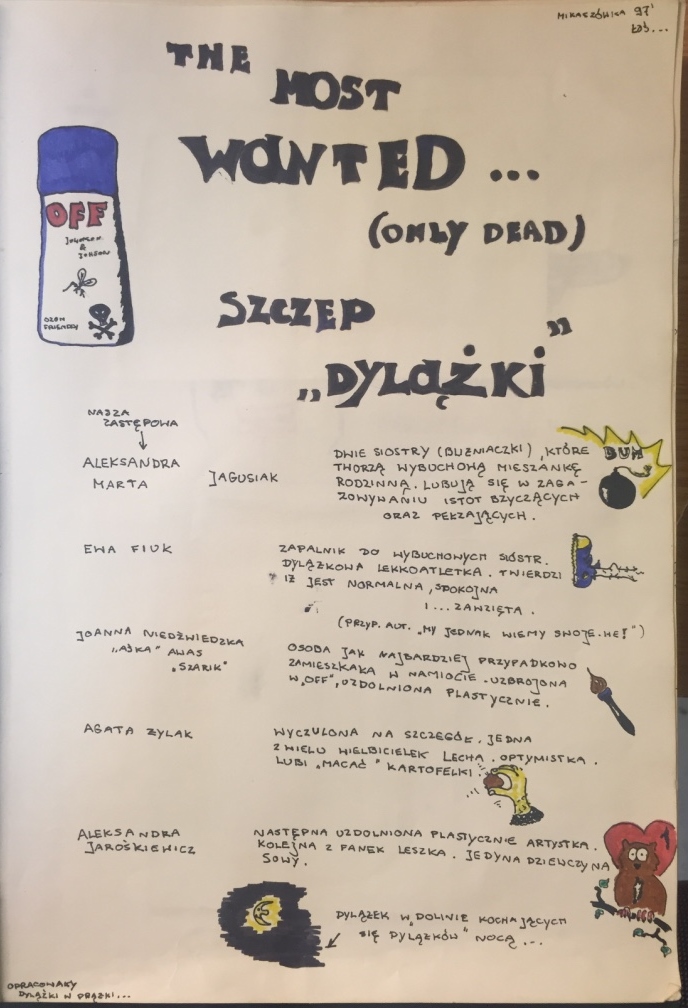 MIKASZÓWKA 97'
ŁÓŚ...
THE
MOST
WANTED ...
(ONLY DEAD)
OFF
JOHNSON
&
JOHSON
OZON
FRIENDLY
SZCZEP
„DYLĄŻKI"
NASZA
ZASTĘPOWA
ALEKSANDRA
MARTA
JAGUSIAK
DWIE SIOSTRY (BLIŹNIACZKI), KTÓRE
TWORZĄ WYBUCHOWĄ MIESZANKĘ
RODZINNĄ. LUBUJĄ SIĘ W ZAGA-
ZOWYWANIU ISTOT BZYCZĄCYCH
ORAZ PEŁZAJĄCYCH.
BUM
EWA FIUK
ZAPALNIK DO WYBUCHOWYCH SIÓSTR.
DYLĄŻKOWA LEKKOATLETKA. TWIERDZI
IŻ JEST NORMALNA, SPOKOJNA
I ... ZAWZIĘTA.
(PRZYP. AUT. „MY JEDNAK WIEMY SWOJE. HE!")
JOANNA NIEDŹWIEDZKA
„AŚKA" ALIAS
„SZARIK"
OSOBA JAK NAJBARDZIEJ PRZYPADKOWO
ZAMIESZKAŁA W NAMIOCIE. UZBROJONA
W „OFF", UZDOLNIONA PLASTYCZNIE.
AGATA ŻYLAK
WYCZULONA NA SZCZEGÓŁ. JEDNA
Z WIELU WIELBICIELEK LECHA. OPTYMISTKA.
LUBI „MACAĆ" KARTOFELKI.
ALEKSANDRA
JAROŚKIEWICZ
NASTĘPNA UZDOLNIONA PLASTYCZNIE ARTYSTKA.
KOLEJNA Z FANEK LESZKA. JEDYNA DZIEWCZYNA
SOWY.
DYLĄŻEK W „DOLINIE KOCHAJĄCYCH
SIĘ DYLĄŻKÓW" NOCĄ ...
OPRACOWAŁY
DYLĄŻKI W DRĄŻKI...